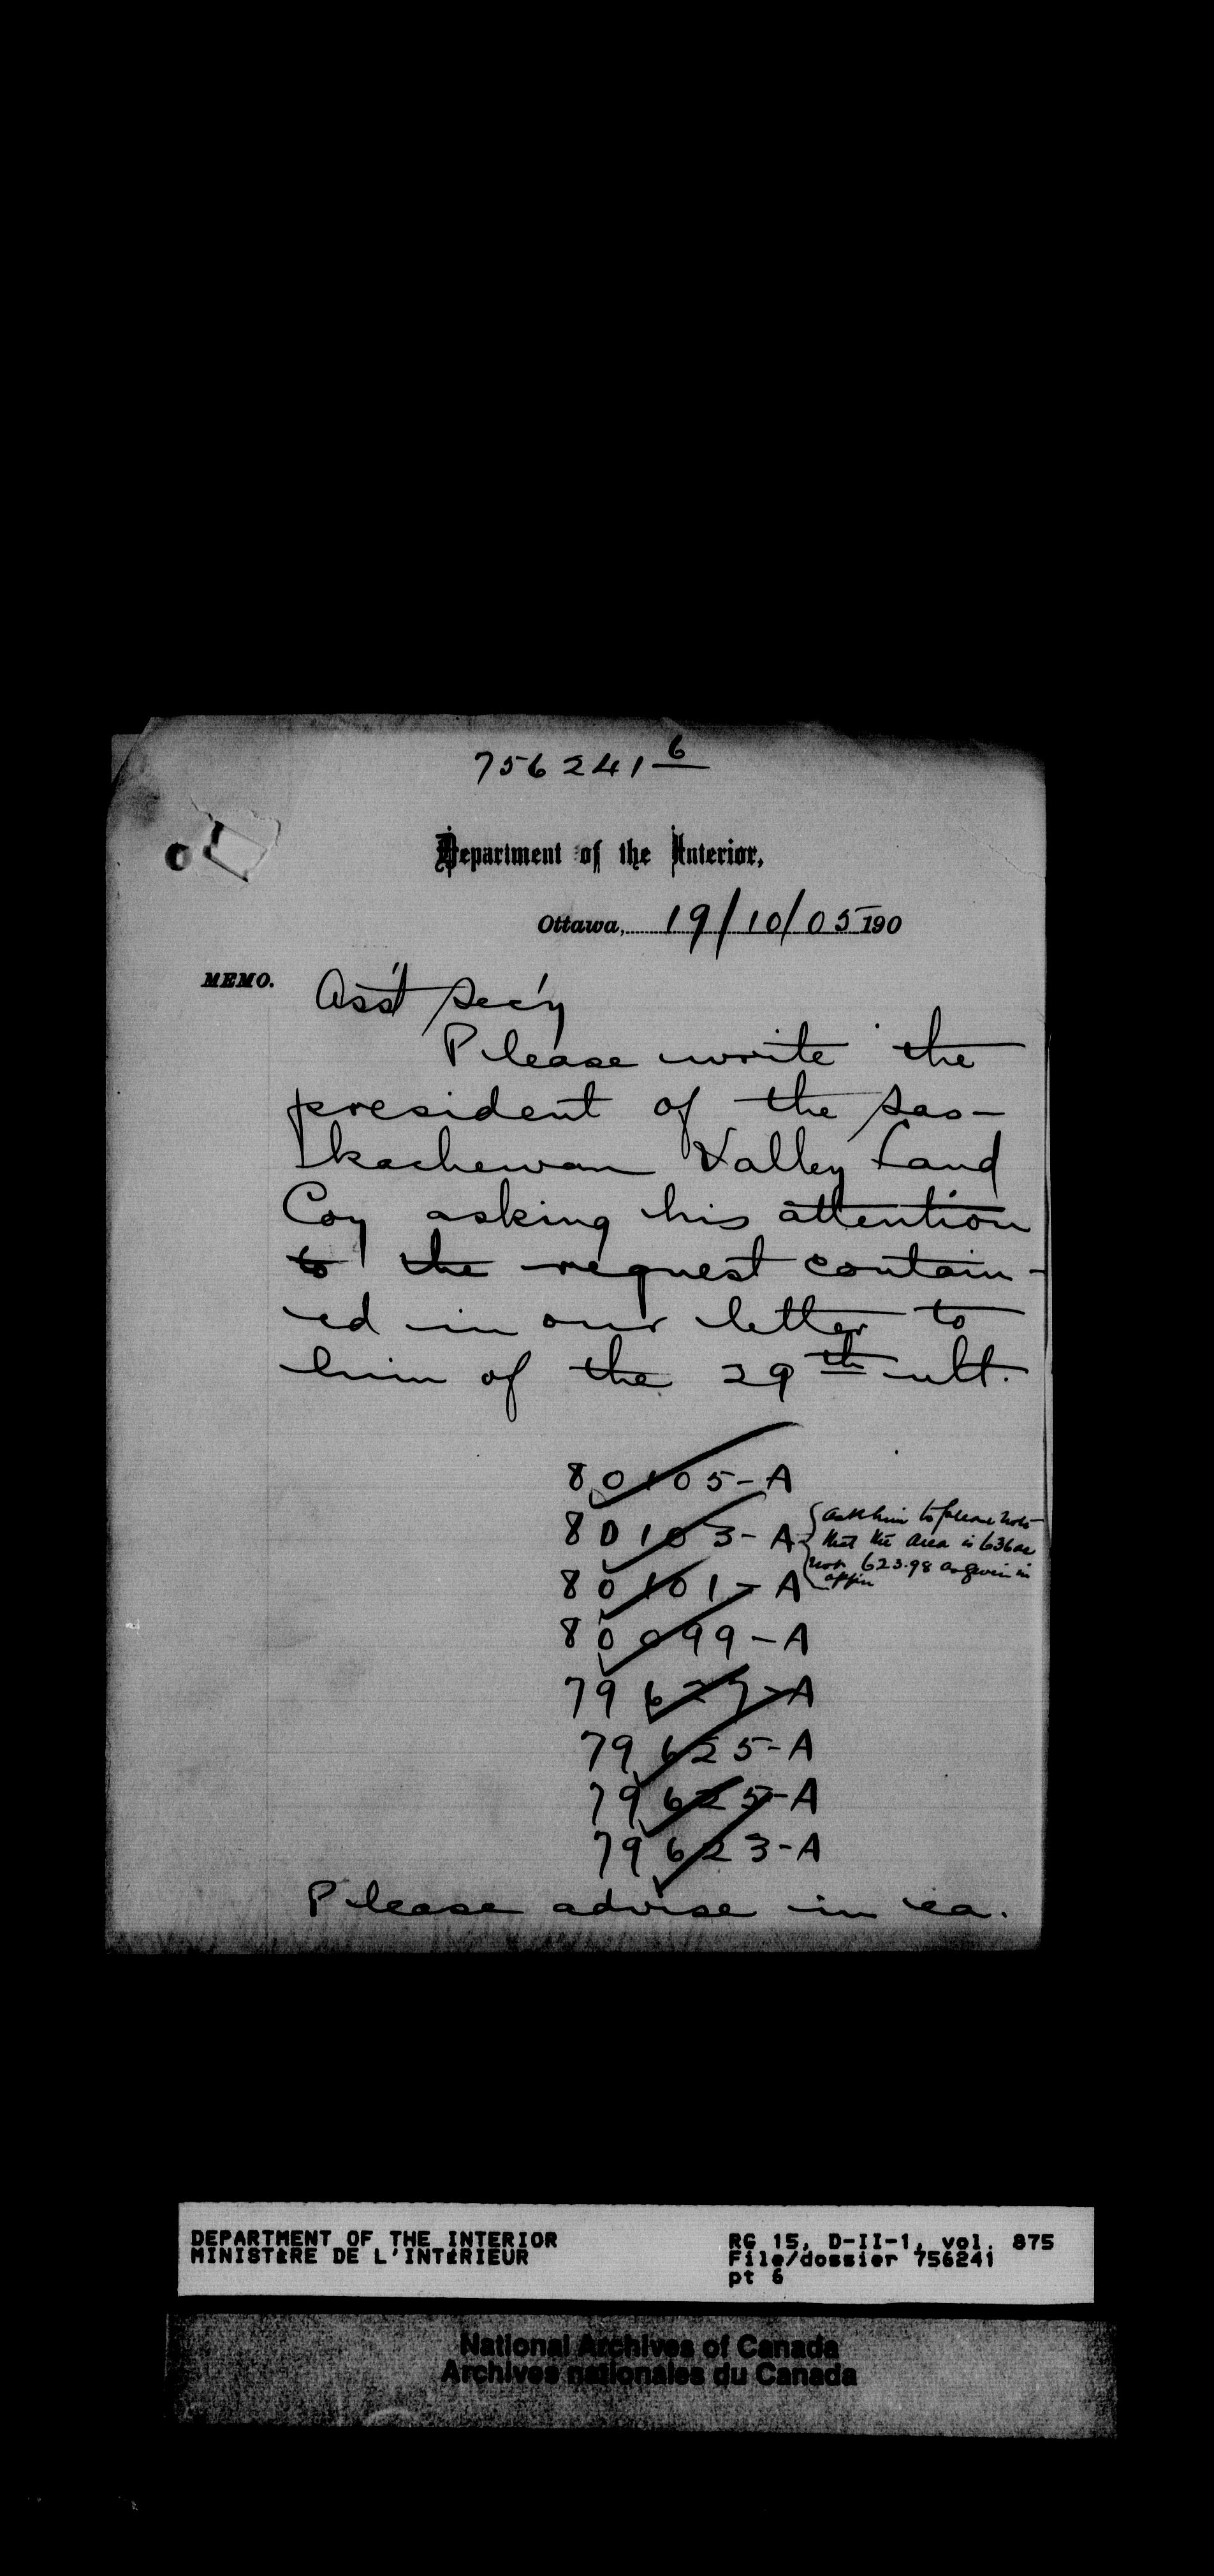 756241 6
Department of the Interior,
Ottawa, 19/10/05 190
MEMO.
Ass't Sec'y
Please write the
president of the Sas-
kachewan Valley Land
Coy asking his attention
to the request contain-
ed in our letter to
him of the 29th ult.
80105-A
80103-A
ask him to please note
that the area is 636 ac
not 623.98 as given in
appn
80101-A
80099-A
79627-A
79625-A
79625-A
79623-A
Please advise in ea.
DEPARTMENT OF THE INTERIOR
MINISTÈRE DE L'INTÉRIEUR
RG 15, D-II-1, vol. 875
File/dossier 756241
pt 6
National Archives of Canada
Archives nationales du Canada